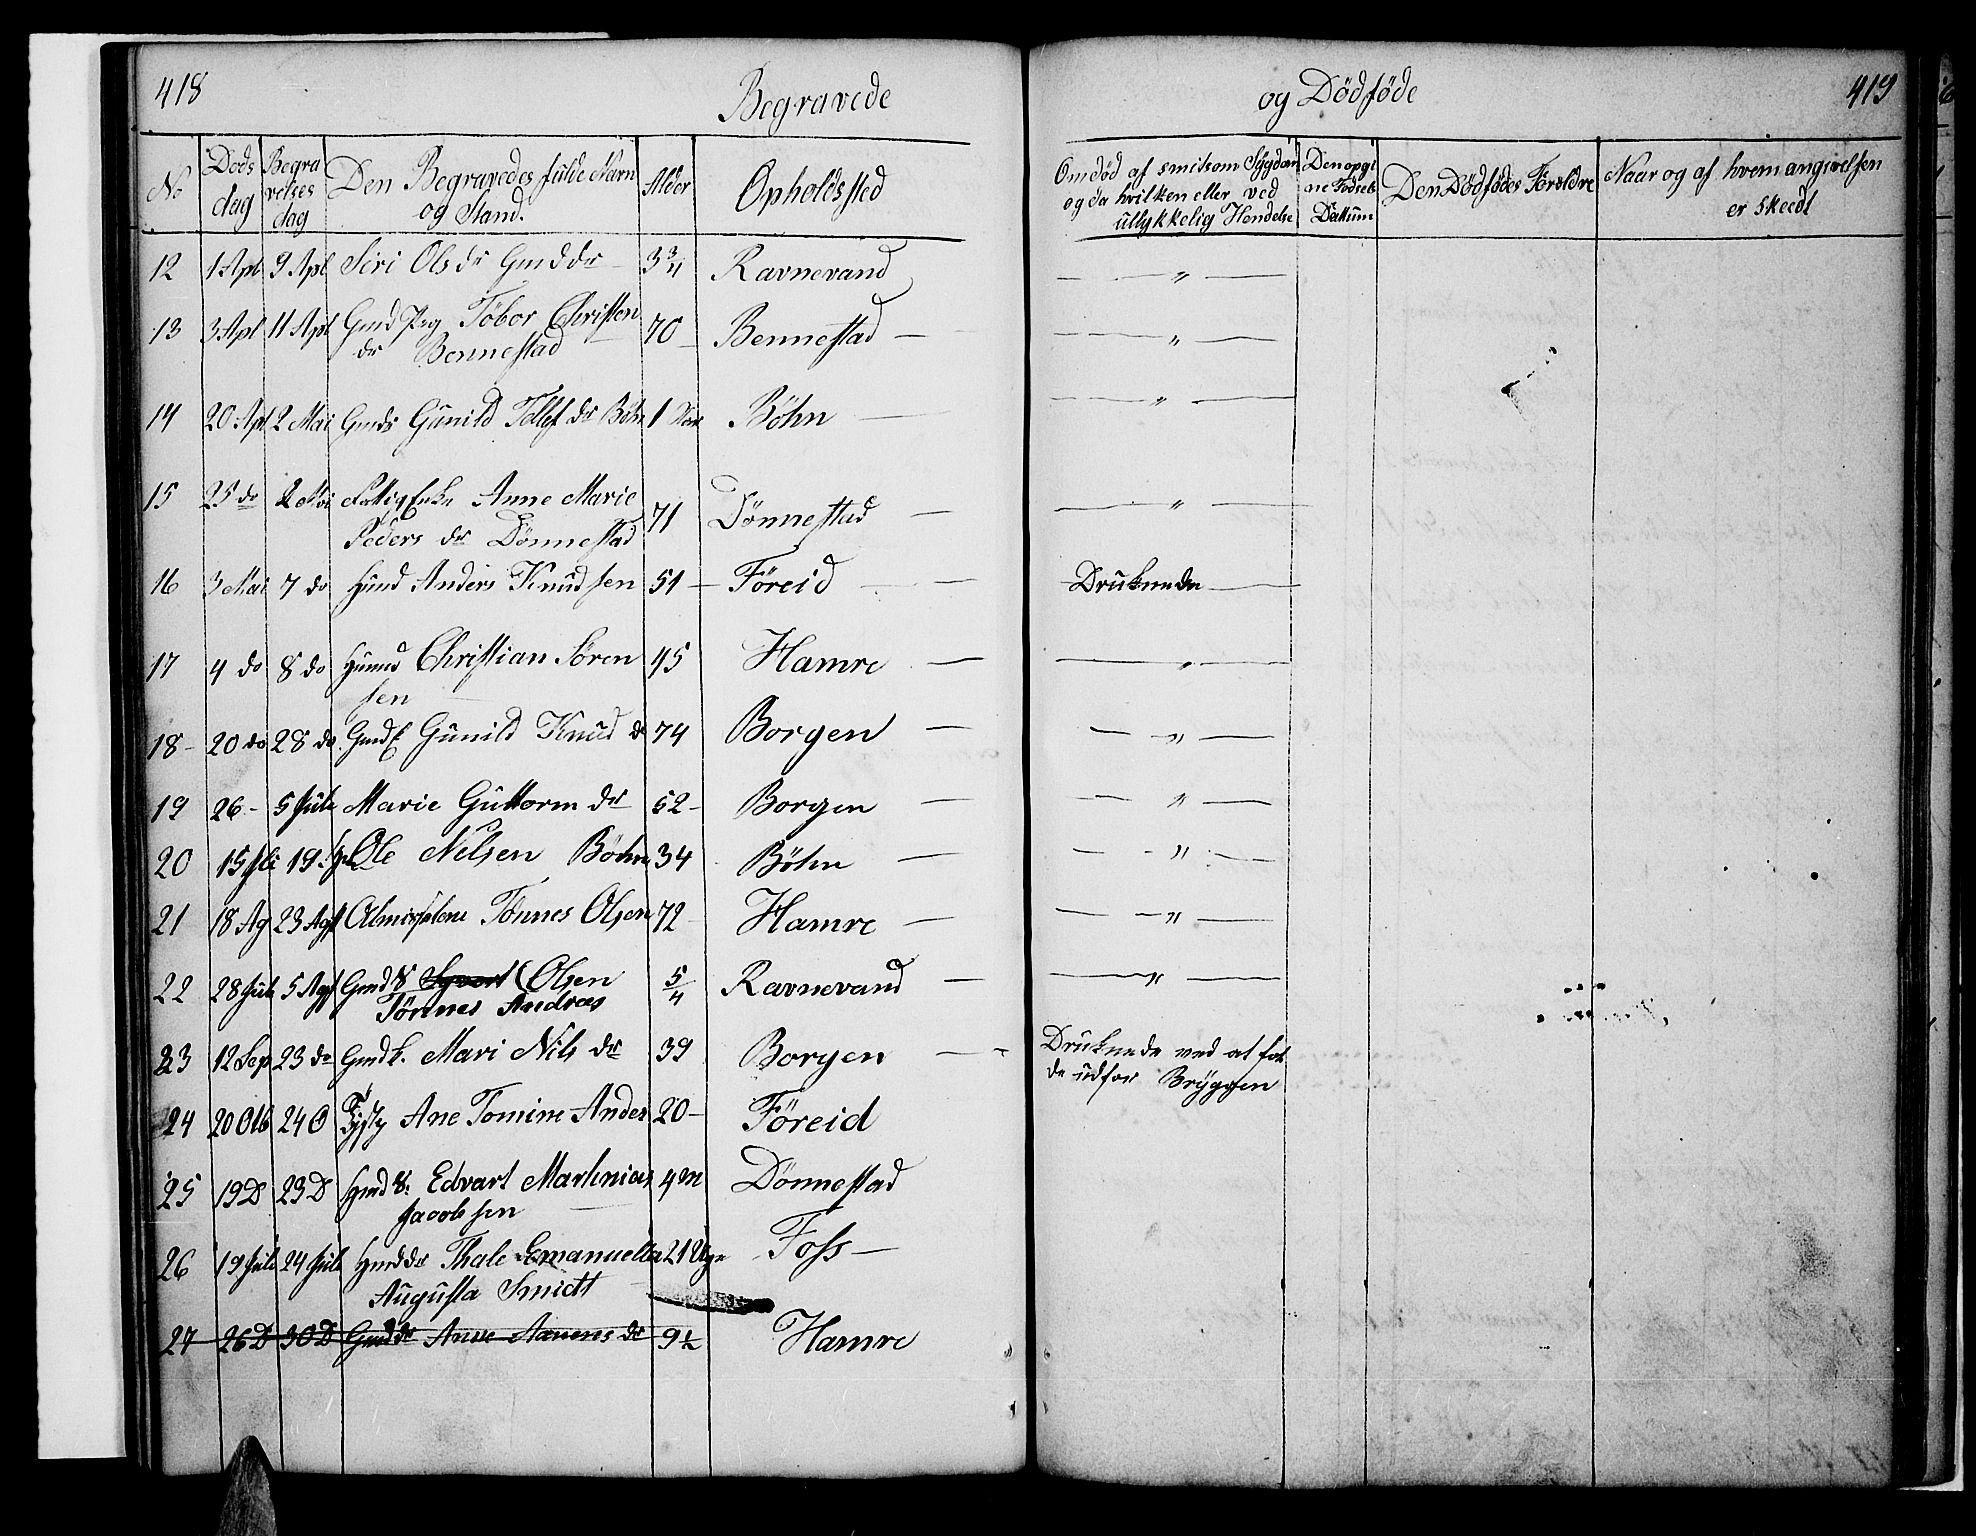 418
Begravede
og Dödföde
419
No
Döds dag
Begravelses dag
Den Begravedes fulde Navn og Stand.
Alder
Opholdssted
Om død af smitsom Sygdom og da hvilken eller ved ullykkelig Hendelse
Den opgine Födsels Dattum
Den Dödfödes Föreldre
Naar og af hvem angivelsen er skeedt
12 1 Apl 9 Apl Siri Ols dr Gmd dr 3 3/4 Ravnevand — " —
13 3 Apl 11 Apl Gmd Pig Töbor Christen 70 — Bennestad — — " —
dr Bennestad
14 20 Apl 2 Mai Gmds Gunild Tellef dr Böhn 1 Böhn — — " —
15 25 do 2 Mai Fattig Enke Anne Marie 71 Dönnestad — — " —
Peders dr Dönnestad
16 3 Mai 7 do Hmd Anders Knudsen 51 — Föreid — Druknede —
17 4 do 8 do Huusmd Christian Sören 45 Hamre — — " —
sen
18 - 20 do 28 do Gmdk Gunild Knud dr 74 Borgen — — " —
19 26 - 5 Juli Marie Guttorm dr 52 - Borgen — — " —
20 15 Juli 19 Ole Nilsen Böhn 34 Böhn — — " —
21 18 Ag 23 Agst Almisselem Tönnes Olsen 72 - Hamre — — " —
22 28 Juli 5 Agst Gmd S Olsen 5/4 Ravnevand — — " —
Tönnes Andreas
23 12 Sep 23 do Gmdk. Mari Nils dr 39 Borgen — - Druknede ved at fal
de udfor Bryggen
24 20 Otb 24 O Ane Tomine Anders 20 - Föreid
25 19 D 23 D Hmd S. Edvart Martinius 4 m Dönnestad
Jacobsen
26 19 Juli 24 Juli Hmd dr Thale Emanuella 21 Uger Foss —
Augusta Smidt
27 26 D 30 D Gmd dr Anne Aanens dr 9 1/2 Hamre